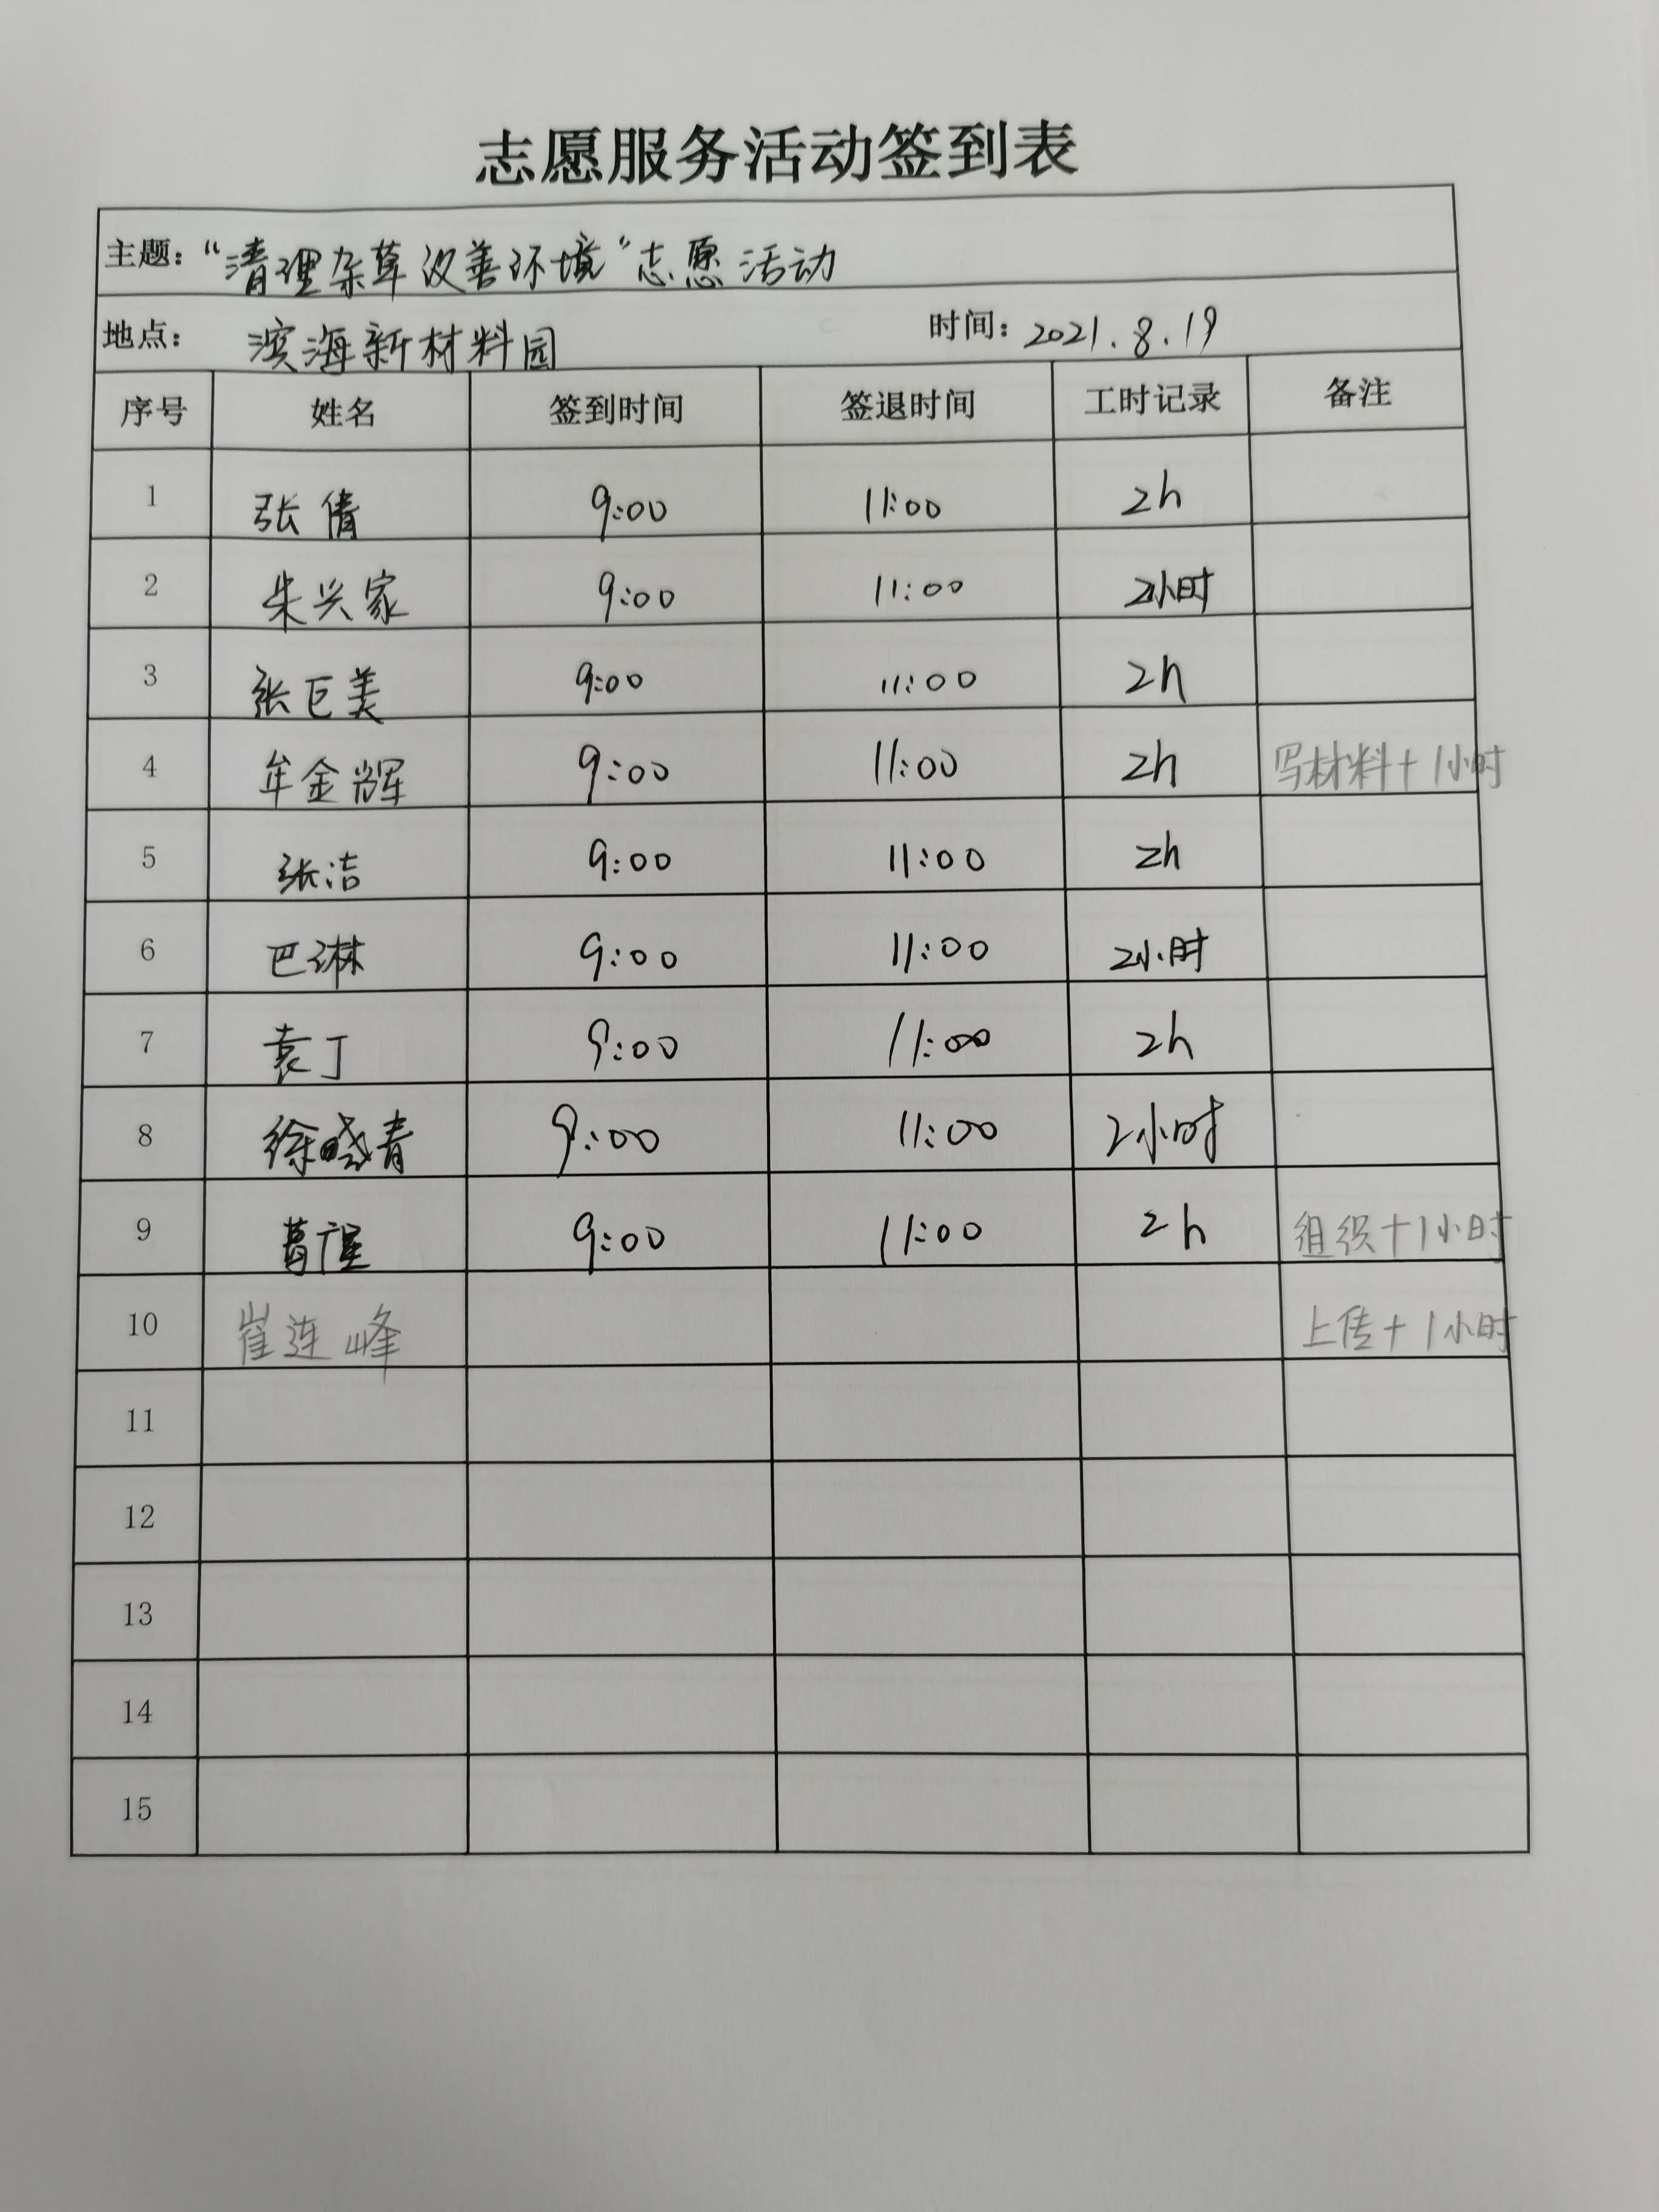 志愿服务活动签到表
主题：“清理杂草改善环境”志愿活动
地点： 滨海新材料园 时间：2021.8.19
序号 姓名 签到时间 签退时间 工时记录 备注
1 张倩 9:00 11:00 2h
2 朱兴家 9:00 11:00 2小时
3 张巨美 9:00 11:00 2h
4 牟金辉 9:00 11:00 2h 写材料+1小时
5 张洁 9:00 11:00 2h
6 巴琳 9:00 11:00 2小时
7 袁丁 9:00 11:00 2h
8 徐晓青 9:00 11:00 2小时
9 9:00 11:00 2h 组织+1小时
10 崔连峰 上传+1小时
11
12
13
14
15